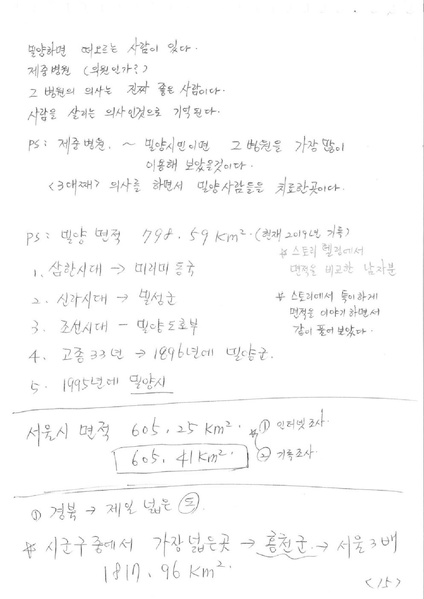 밀양하면 떠오르는 사람이 있다.
제중병원 (의원인가?)
그 병원의 의사는 진짜 좋은 사람이다.
사람을 살리는 의사인것으로 기억된다.
PS: 제중병원. ~ 밀양시민이면 그 병원을 가장 많이
이용해 보았을것이다.
<3대째> 의사를 하면서 밀양사람들을 치료한곳이다.
PS: 밀양 면적 798.59 Km². (현재 2019년 기록)
※ 스토리 헬깅에서
면적을 비교한 남자분
1. 삼한시대 → 미리미동국
2. 신라시대 → 밀성군
※ 스토리에서 특이하게
면적을 이야기하면서
같이 풀어보았다.
3. 조선시대 - 밀양도호부
4. 고종 33년 → 1896년에 밀양군.
5. 1995년에 밀양시
서울시 면적 605.25 Km². ※ ① 인터넷조사.
605.41 Km². ② 기록조사.
① 경북 → 제일 넓은 도
※ 시군구중에서 가장 넓은곳 → 홍천군. → 서울 3배
1817.96 Km².
<15>